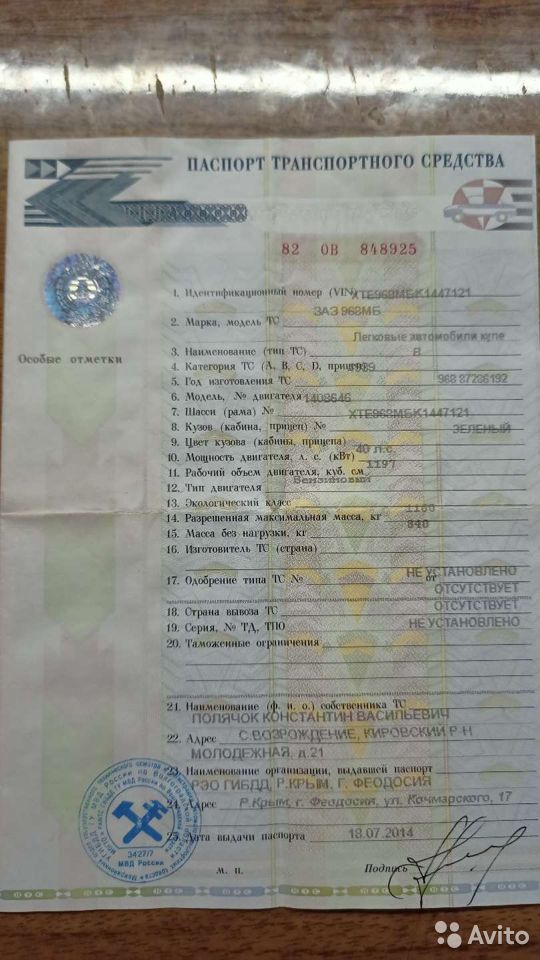 ПАСПОРТ ТРАНСПОРТНОГО СРЕДСТВА
82 ОВ 848925
1. Идентификационный номер (VIN) ХТЕ968МБК1447121
2. Марка, модель ТС ЗАЗ 968МБ
3. Наименование (тип ТС) Легковые автомобили купе
4. Категория ТС (А, В, С, D, прицеп) В
5. Год изготовления ТС 1989
6. Модель, № двигателя 968 87286192
7. Шасси (рама) № 1408646
8. Кузов (кабина, прицеп) № ХТЕ968МБК1447121
9. Цвет кузова (кабины, прицепа) ЗЕЛЕНЫЙ
10. Мощность двигателя, л. с. (кВт) 40 л.с.
11. Рабочий объем двигателя, куб. см 1197
12. Тип двигателя Бензиновый
13. Экологический класс
14. Разрешенная максимальная масса, кг 1160
15. Масса без нагрузки, кг 840
16. Изготовитель ТС (страна)
17. Одобрение типа ТС № НЕ УСТАНОВЛЕНО
от
ОТСУТСТВУЕТ
18. Страна вывоза ТС ОТСУТСТВУЕТ
19. Серия, № ТД, ТПО НЕ УСТАНОВЛЕНО
20. Таможенные ограничения
21. Наименование (ф. и. о.) собственника ТС
ПОЛЯЧОК КОНСТАНТИН ВАСИЛЬЕВИЧ
22. Адрес С.ВОЗРОЖДЕНИЕ, КИРОВСКИЙ Р-Н
МОЛОДЕЖНАЯ, д.21
23. Наименование организации, выдавшей паспорт
РЭО ГИБДД, Р.КРЫМ, Г. ФЕОДОСИЯ
24. Адрес Р.Крым, г. Феодосия, ул. Кочмарского, 17
25. Дата выдачи паспорта 18.07.2014
М. П. Подпись
Особые отметки
3427/7
МВД России
Avito